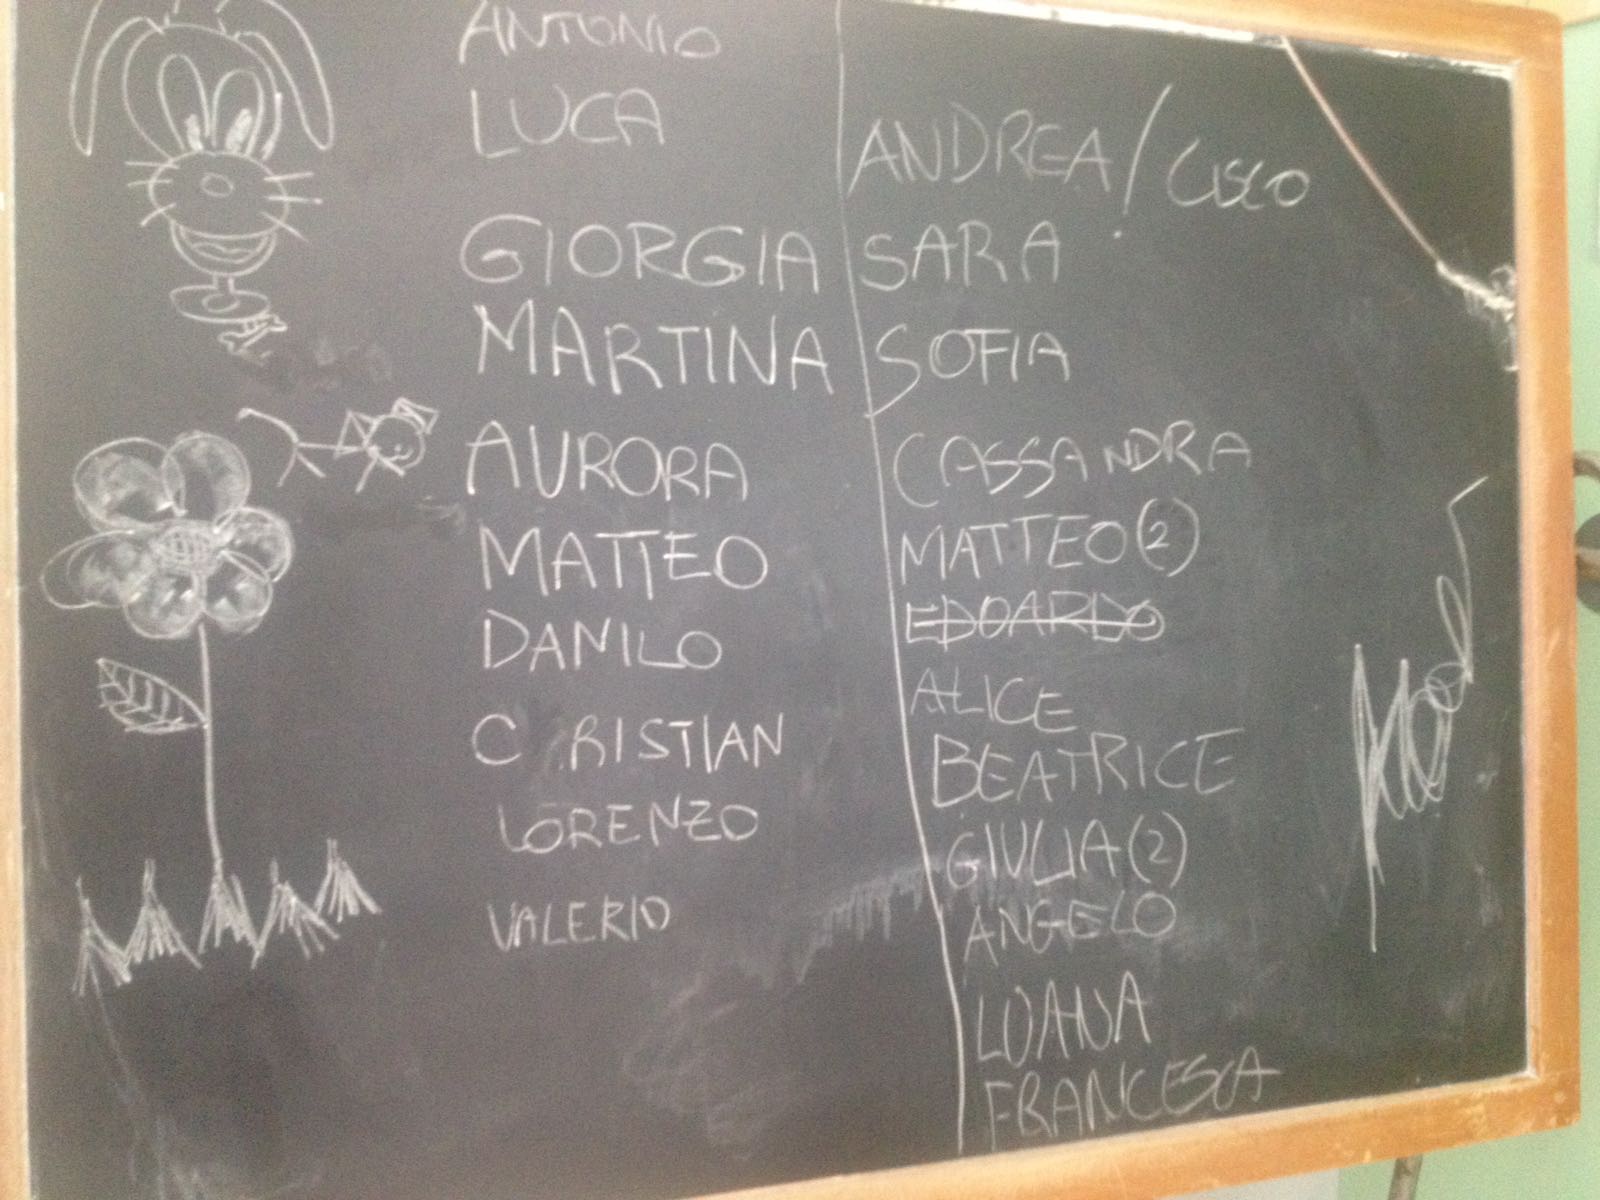 ANTONIO
LUCA
GIORGIA
MARTINA
AURORA
MATTEO
DANILO
C RISTIAN
LORENZO
VALERIO
ANDREA / CISCO
SARA
SOFIA
CASSANDRA
MATTEO (2)
EDOARDO
ALICE
BEATRICE
GIULIA (2)
ANGELO
LUANA
FRANCESCA